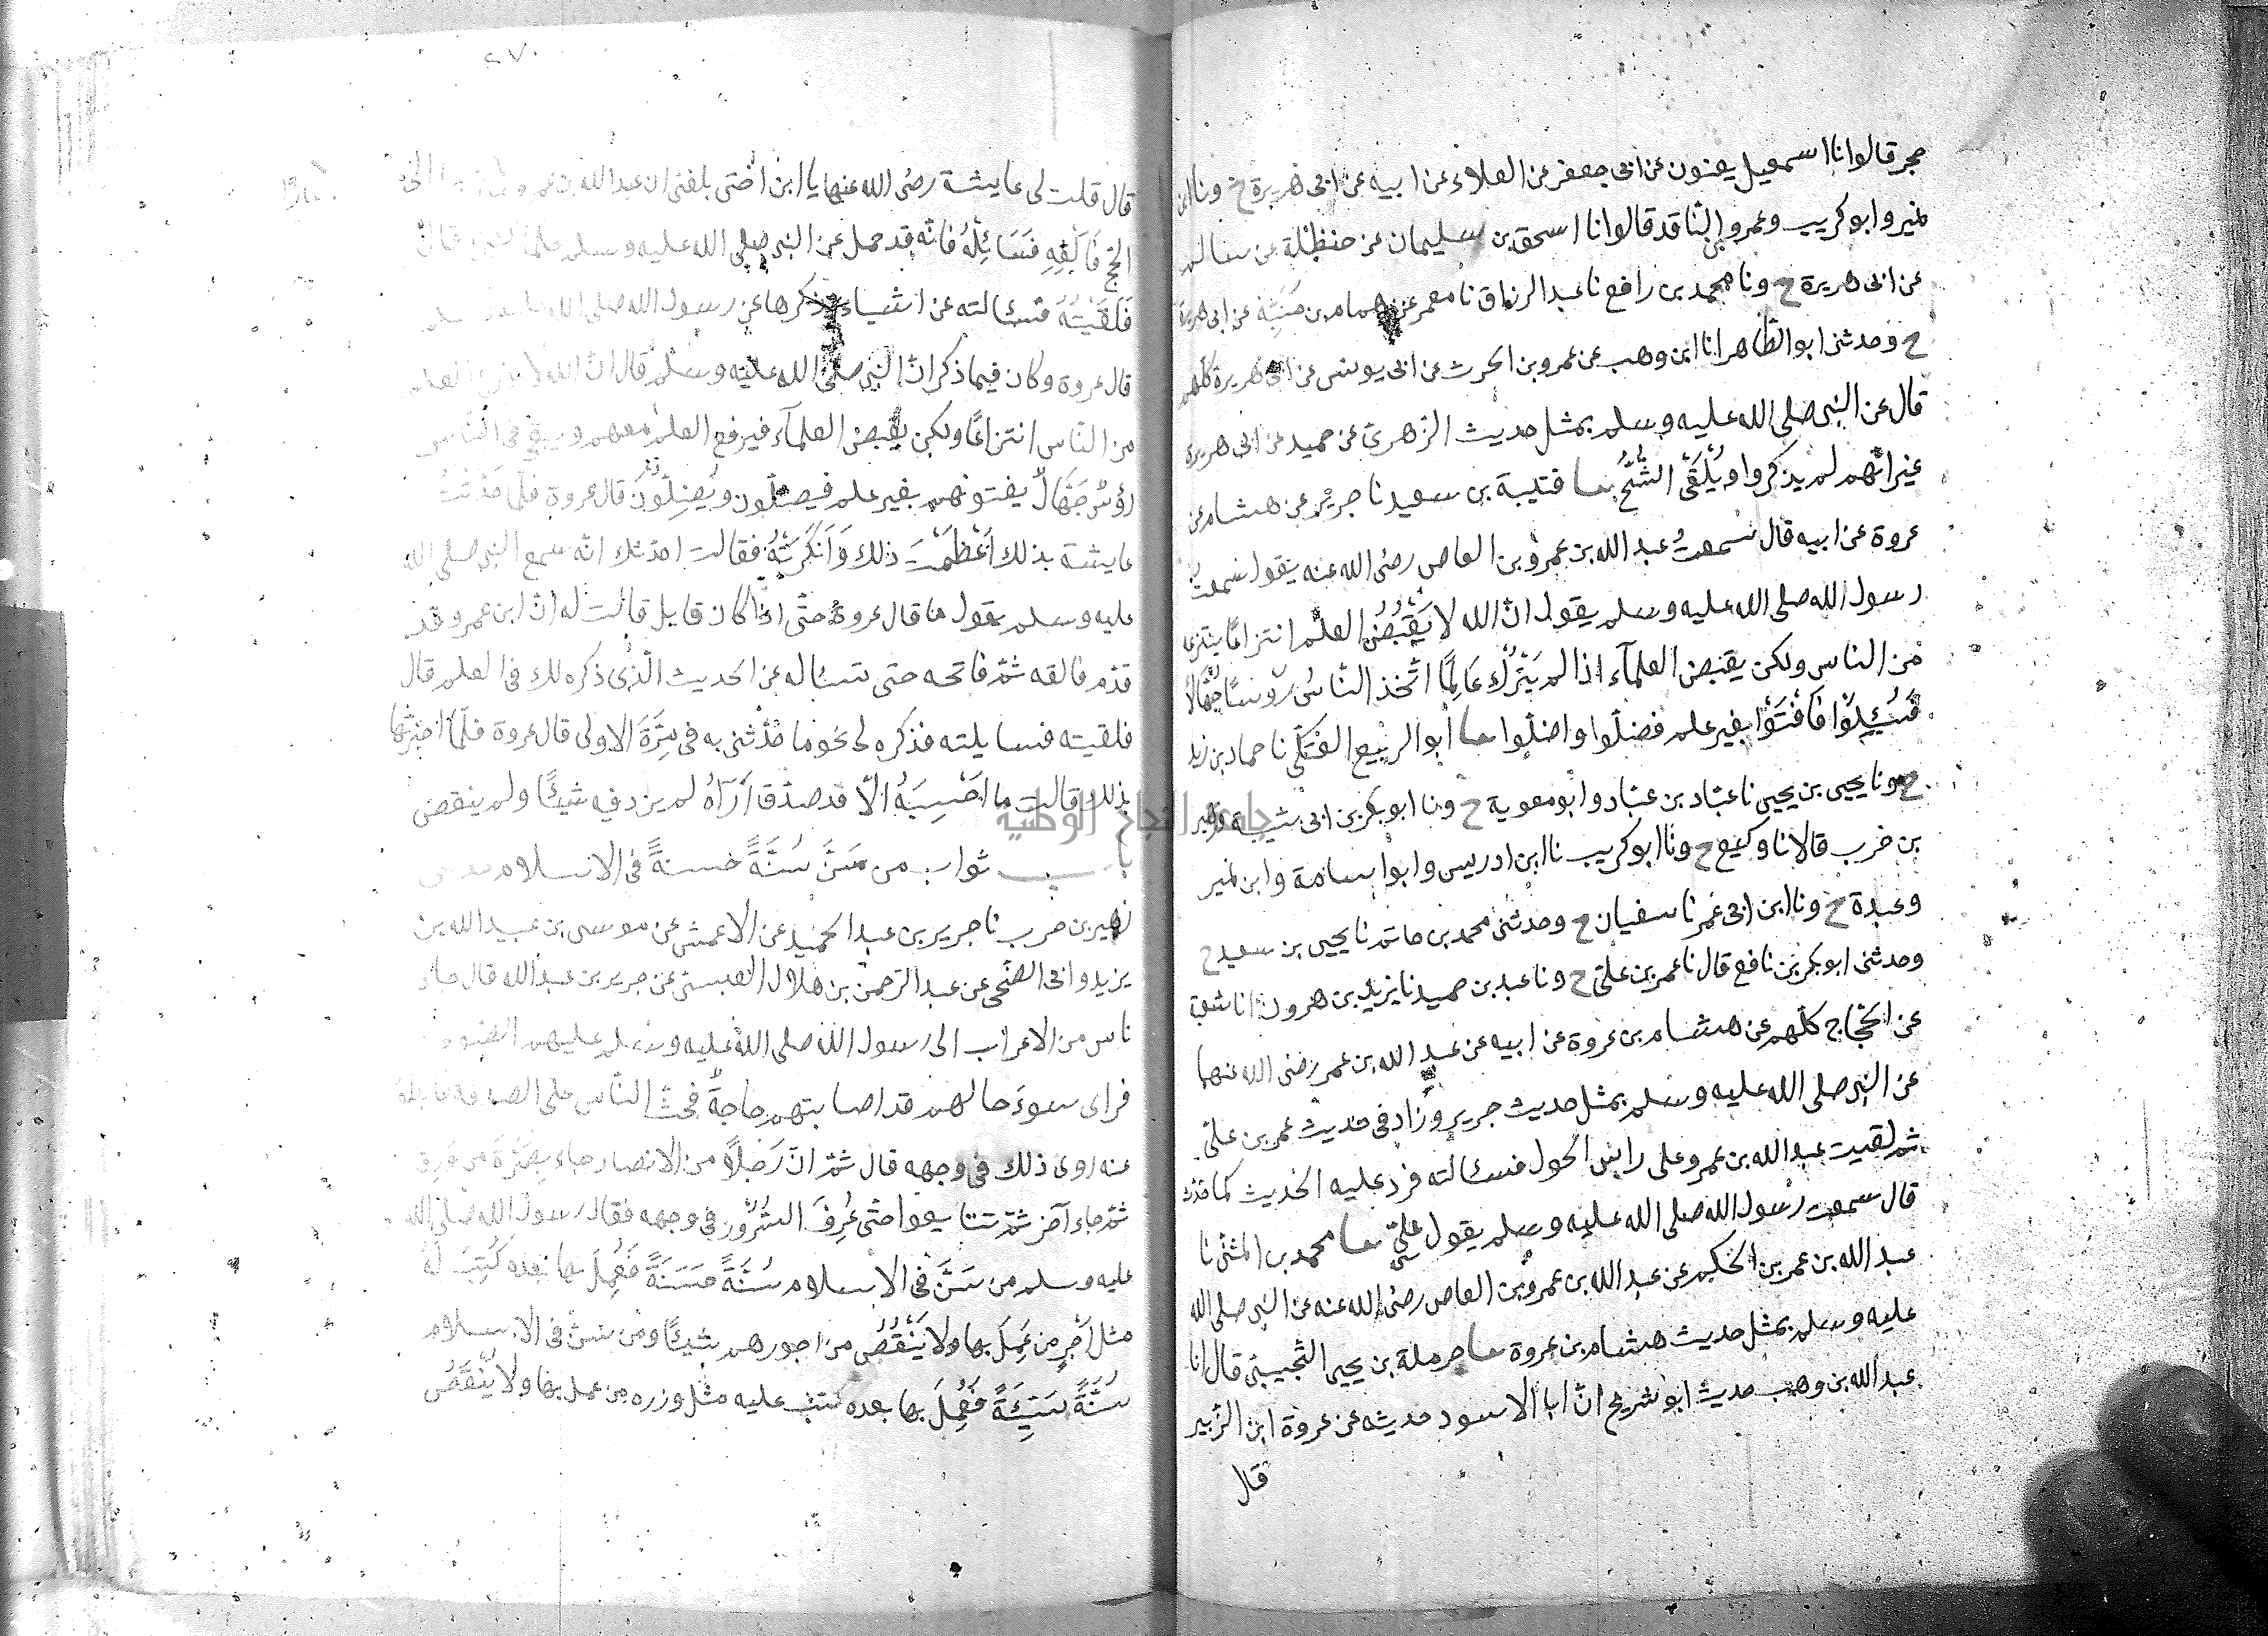 حجر قالوا نا اسمعيل يعنون عن ابى جعفر عن العلاء عن ابيه عن ابى هريرة ح ونا ابن
نمير وابو كريب وعمرو بن النّاقد قالوا نا اسحق بن سليمان عن حنظلة عن سالم
عن ابى هريرة ح ونا محمد بن رافع نا عبد الرزاق نا معمر عن همام بن مُنَبّه عن ابى هريرة
ح وحدثنى ابو الطّاهر انا ابن وهب عن عمرو بن الحرث عن ابى يونس عن ابى هريرة كلهم
قال عن النبى صلى الله عليه وسلم بمثل حديث الزهرىّ عن حميد عن ابى هريرة
غير انّهم لم يذكروا ويُلْقَى الشُّحُّ حدثنا قتيبة بن سعيد نا جرير عن هشام بن
عروة عن ابيه قال سمعتُ عبد الله بن عمرو بن العاص رضى الله عنه يقول سمعتُ
رسول الله صلى الله عليه وسلم يقول انّ الله لا يَقْبِضُ العلم انتزاعًا ينتزعه
من الناس ولكن يقبض العلمآء اذا لم يَتْرُكْ عَالِمًا اتّخذ النّاسُ رؤسًا جُهّالاً
فَسُئِلُوْا فَاَفْتَوْا بغير علم فضلّوا واضلّوا حدثنا ابو الربيع العَتَكّى نا حماد بن زيد
ح ونا يحيى بن يحيى نا عبّاد بن عبّاد وابو معوية ح ونا ابو بكر بن ابى شيبة وزهير
بن حرب قالا نا وكيع ح ونا ابو كريب نا ابن ادريس وابو اسامة وابن نمير
وعبدة ح ونا ابن ابى عمر نا سفيان ح وحدثنى محمد بن حاتم نا يحيى بن سعيد ح
وحدثنى ابو بكر بن نافع قال نا عمر بن علىّ ح ونا عبد بن حميد نا يزيد بن هرون انا شعبة
عن الحجّاج كلّهم عن هشام بن عروة عن ابيه عن عبد الله بن عمر رضى الله عنهما
عن النبى صلى الله عليه وسلم بمثل حديث جرير وزاد فى حديث عمر بن علىّ
ثم لقيت عبد الله بن عمرو على راس الحول فسالته فرد عليه الحديث كما حدّث
قال سمعت رسول الله صلى الله عليه وسلم يقول علىّ حدثنا محمد بن المثنّى نا
عبد الله بن عمر بن الحكيم عن عبد الله بن عمرو بن العاص رضى الله عنه عن النبى صلى الله
عليه وسلم بمثل حديث هشام بن عروة حدثنا حرملة بن يحيى التّجيبىّ قال انا
عبد الله بن وهب حديث ابو شريح انّ ابا الاسود حديثه عن عروة ابن الزّبير
قال
٢٧٠
قال قلت لى عايشة رضى الله عنها يا ابن اختى بلغنى ان عبد الله بن عمرو الى
الحج فَالْقِهِ فَسَائِلْهُ فانّه قد حمل عن النبى صلى الله عليه وسلم علما كثيرا قال
فَلَقَيْتُهُ فسالته عن اشياء يذكرها عن رسول الله صلى الله عليه وسلم
قال عروة وكان فيما ذكر انّ النبى صلى الله عليه وسلم قال انّ الله لا ينزع العلم
من النّاس انتزاعًا ولكن يقبض العلمآء فيرفع العلم معهم ويبقى فى النّاس
رؤسٌ جُهَّالٌ يفتونهم بغير علم فيضلّون ويُضِلُّونَ قال عروة فلمّا حَدّثتُ
عايشة بذلك اَعْظَمَتْ ذلك وَاَنْكَرَتْهُ فقالت احدّثك انّه سمع النبى صلى الله
عليه وسلم يقول ما قال عروة حتّى اذا كان قابل قالت له انّ ابن عمرو قد
قدم فالقه ثمّ فاتحه حتى تساله عن الحديث الّذى ذكره لك فى العلم قال
فلقيته فسايلته فذكره لى نحو ما حَدّثنى به فى مَرَّة الاولى قال عروة فلمّا اخبرتُها
بذلك قالت ما احْسِبُهُ الّا قد صدَق اَرَاهُ لم يزد فيه شيئًا ولم ينقص
باب ثواب من سَنَّ سُنَّةً حسنةً فى الاسلام
زهير بن حرب نا جرير بن عبد الحميد عن الاعمش عن موسى بن عبيد الله بن
يزيد وابى الضّحى عن عبد الرّحمن بن هلال العبسى عن جرير بن عبد الله قال جاء
ناس من الاعراب الى رسول الله صلى الله عليه وسلم عليهم الصّوف
فراى سوءَ حالهم قد اصابتهم حاجةٌ فحثّ النّاس على الصدقة فابطؤا
عنه روى ذلك فى وجهه قال ثمّ انّ رَجُلاً من الانصار جاء بِصُرّة من وَرِق
ثمّ جاء آخر ثمّ تتابعوا حتّى عُرِفَ السُّرُورُ فى وجهه فقال رسول الله صلى الله
عليه وسلم من سَنَّ فى الاسلام سُنَّةً حسَنَةً فَعُمِلَ بها بعده كُتِبَ له
مثل اَجْرِ من عَمِلَ بها ولا يَنْقُصُ من اجورهم شيئًا ومن سَنَّ فى الاسلام
سُنَّةً سَيِّئَةً فَعُمِلَ بها بعده كتب عليه مثل وزره من عمل بها ولا يَنْقُصُ
جامعة النجاح الوطنية